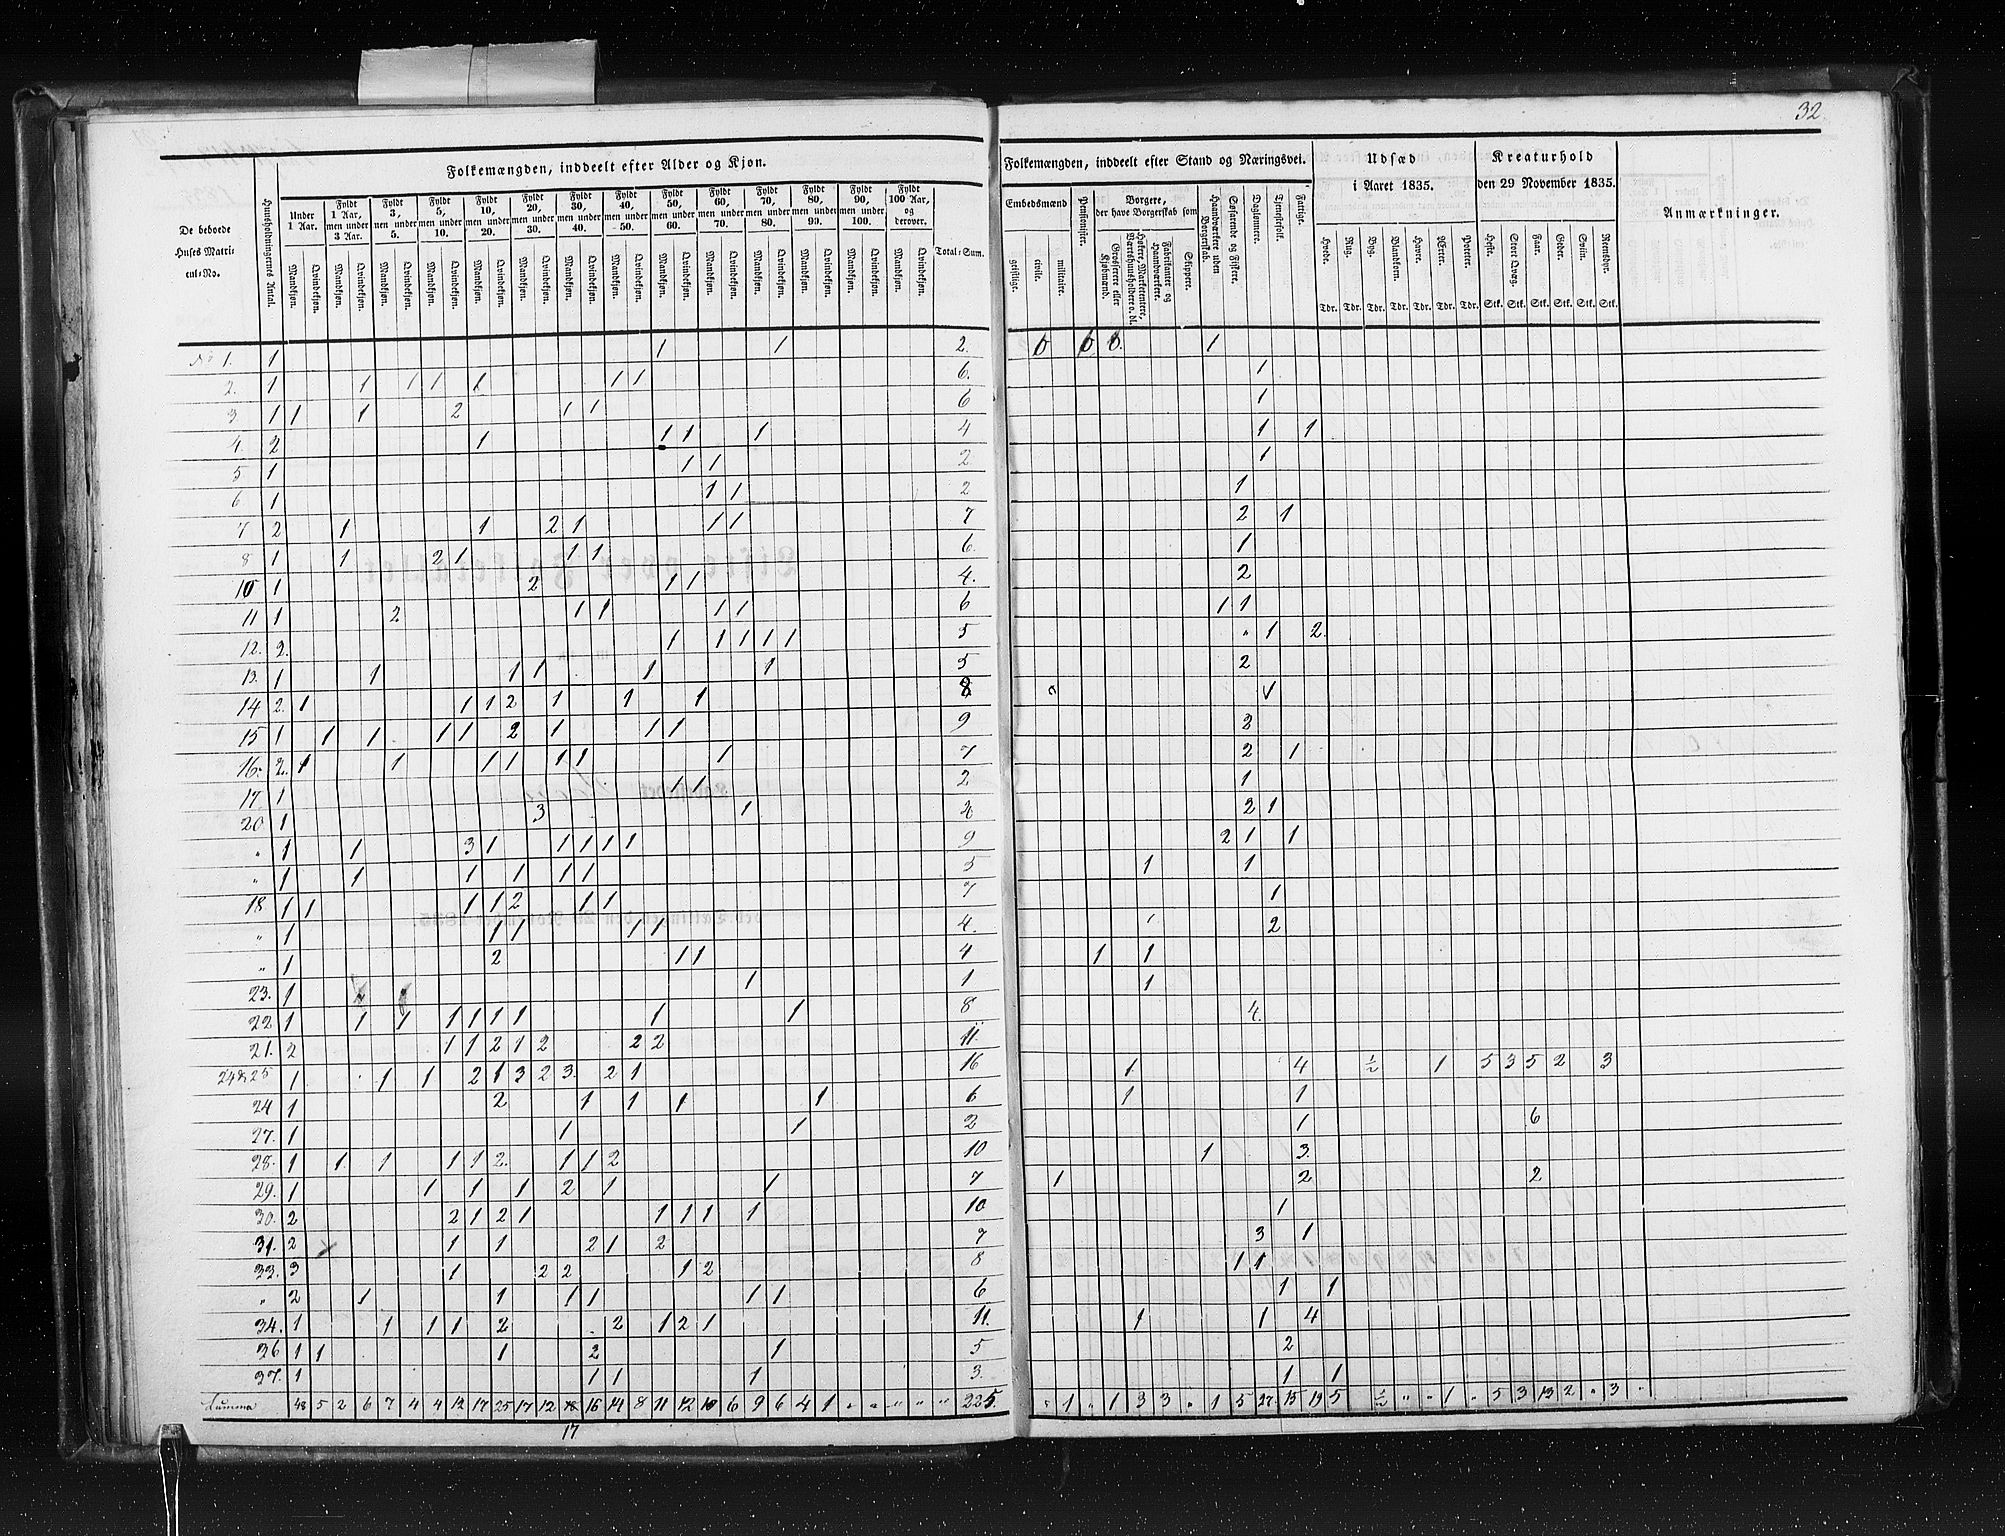 32.
Folkemængden, inddeelt efter Alder og Kjøn.
De beboede Huses Matricul-No.
Huusholdningernes Antal.
Under 1 Aar.
Fyldt 1 Aar, men under 3 Aar.
Fyldt 3, men under 5.
Fyldt 5, men under 10.
Fyldt 10, men under 20.
Fyldt 20, men under 30.
Fyldt 30, men under 40.
Fyldt 40, men under 50.
Fyldt 50, men under 60.
Fyldt 60, men under 70.
Fyldt 70, men under 80.
Fyldt 80, men under 90.
Fyldt 90, men under 100.
Fyldt 100 Aar, og derover.
Mandkjøn. Qvindekjøn. Mandkjøn. Qvindekjøn. Mandkjøn. Qvindekjøn. Mandkjøn. Qvindekjøn. Mandkjøn. Qvindekjøn. Mandkjøn. Qvindekjøn. Mandkjøn. Qvindekjøn. Mandkjøn. Qvindekjøn. Mandkjøn. Qvindekjøn. Mandkjøn. Qvindekjøn. Mandkjøn. Qvindekjøn. Mandkjøn. Qvindekjøn. Mandkjøn. Qvindekjøn. Mandkjøn. Qvindekjøn.
Total-Sum.
No 1. 1 1 1 2.
2. 1 1 1 1 1 1 1 6.
3 1 1 1 2 1 1 6
4. 2 1 1 1 1 4
5 1 1 1 2.
6 1 1 1 2
7 2 1 1 2 1 1 1 7
8 1 1 2 1 1 1 6.
10 1 2 1 1 4.
11 1 2 1 1 1 1 6
12. 2. 1 1 1 1 1 5
13. 1 1 1 1 1 1 5
14 2. 1 1 1 2 1 1 1 8
15 1 1 1 1 1 2 1 1 1 9
16. 2. 1 1 1 1 1 1 1 7
17 1 1 1 2
20 1 3 1
" 1 1 3 1 1 1 1 1 9
" 1 1 1 1 1 1 5
18 1 1 1 1 2 1 1 7
" 1 1 1 1 1 4.
" 1 2 1 1 4
23. 1 1 1
22 1 1 1 1 1 1 1 1 1 8
21. 2 1 1 2 1 2 2 2 11.
24&25 1 1 1 2 1 3 2 3. 2 1 16
24 1 2 1 1 1 1 6
27. 1 1 1 2
28. 1 1 1 1 1 2. 1 1 2 10
29. 1 1 1 1 2 1 1 7
30. 2 2 1 2 1 1 1 1 1 10
31. 2 1 1 2 1 2 7
33. 3 1 2 2 1 2 8
" 2 1 1 1 1 1 1 6
34. 1 1 1 1 2 2 1 2 1 11.
36 1 1 1 2 1 5
37. 1 1 1 1 3.
Summa 48 5 2 6 7 4 4 12 17 25 17 12 16 14 8 11 12 10 6 9 6 4 1 " " " " " 225.
17
Folkemængden, inddeelt efter Stand og Næringsvei.
Embedsmænd
geistlige.
civile.
militaire.
Pensionister.
Borgere, der have Borgerskab som
Grosserere eller Kjøbmænd.
Høkere, Marketentere, Værtshuusholdere o. dl.
Fabrikanter og Haandværkere.
Skippere.
Haandværkere uden Borgerskab.
Søfarende og Fiskere.
Daglønnere.
Tjenestfolk.
Fattige.
Udsæd i Aaret 1835.
Hvede. Rug. Byg. Blandkorn. Havre. Ærter. Poteter.
Tdr. Tdr. Tdr. Tdr. Tdr. Tdr. Tdr.
Kreaturhold den 29 November 1835.
Heste. Stort Qvæg. Faar. Geder. Sviin. Rensdyr.
Stk. Stk. Stk. Stk. Stk. Stk.
Anmærkninger.
1
1
1
1 1
1
1
2 1
1
2
1 1
" 1 2.
2
2
2 1
1
2 1
2 1 1
1 1
1
1 2
1 1
1
4.
1 4 ½ 1 5 3 5 2 3
1 1
1 6
1 3.
1 2 2
1
3 1
1 1
1 1
1 1 4
2
1 1
" 1 " 1 3 3 " 1 5 27. 15 19 5 ½ " " 1 " 5 3 13 2 " 3 "